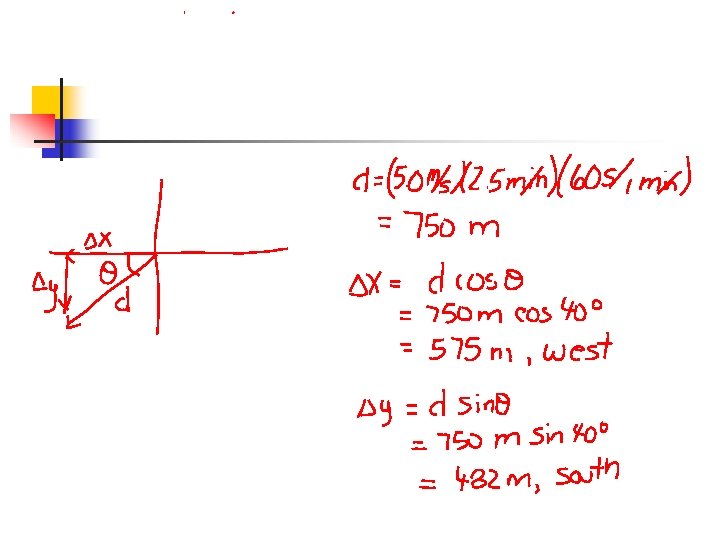 d=(5.0 m/s)(2.5 min)(60s/1 min)
= 750 m
Δx
θ
Δy
d
Δx = d cosθ
= 750m cos 40°
= 575 m, west
Δy = d sinθ
= 750 m sin 40°
= 482 m, south